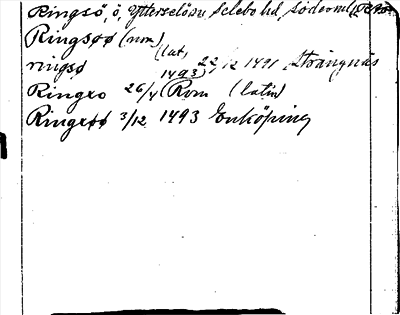 Ringsö, ö, Ytterselö sn, Selebo hd, Södermanl
Ringsøø (nom)
ringsø (lat) 22/12 1491 Strängnäs
1493)
Ringxo 26/4 Rom (latin)
Ringxøø 3/12 1493 Enköping